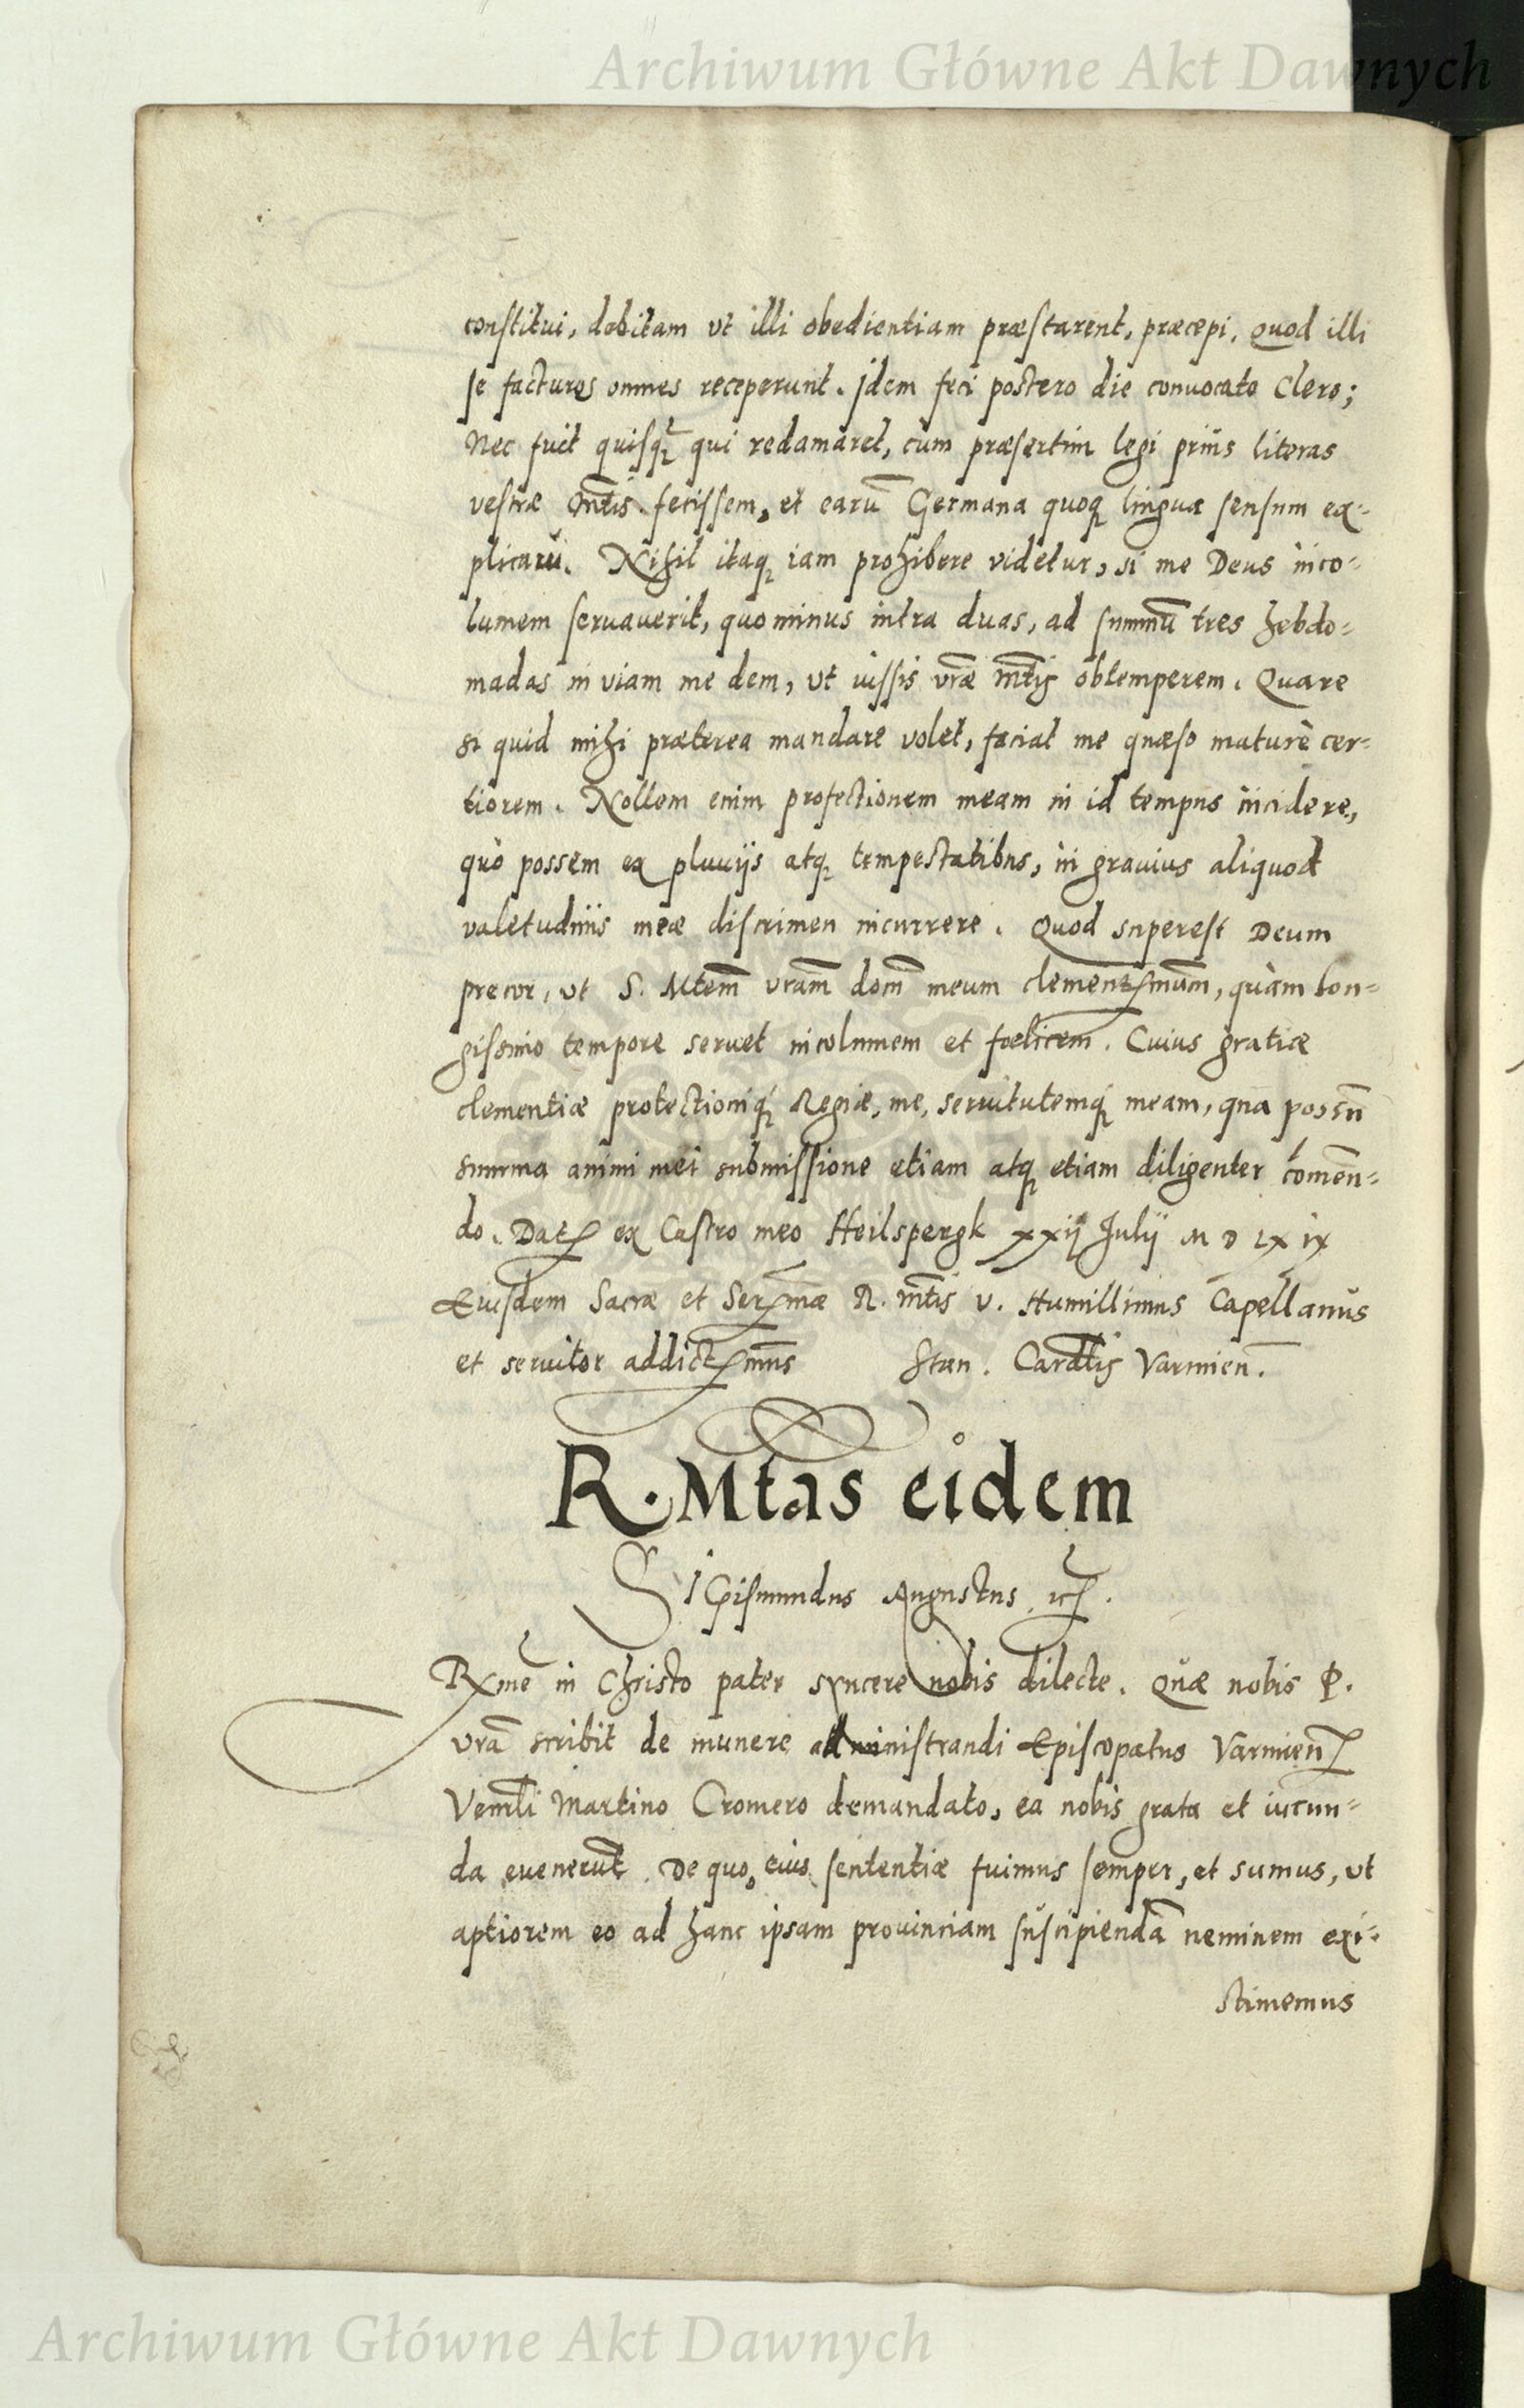 Archiwum Główne Akt Dawnych
constitui, debitam ut illi obedientiam præstarent, præcepi. Quod illi
se facturos omnes receperunt. Idem feci postero die convocato Clero;
Nec fuit quisq̃ qui redamaret, cum præsertim legi prius literas
vestræ Mtis. fecissem, et earũ Germana quoq linguæ sensum ex-
plicarũ. Nihil itaq iam prohibere videtur, si me Deus inco-
lumem servaverit, quominus intra duas, ad summũ tres hebdo-
madas in viam me dem, ut iussis vræ Mtis obtemperem. Quare
si quid mihi præterea mandare volet, faciat me quæso maturè cer-
tiorem. Nollem enim profectionem meam in id tempus incidere,
quò possem ex pluviis atq tempestatibus, in gravius aliquod
valetudinis meæ discrimen incurrere. Quod superest Deum
precor, ut S. Mtem vram dom̃ meum clementissmum, quàm lon-
gissimo tempore servet incolumem et fœlicem. Cuius gratiæ
clementiæ protectioniq́ Regiæ, me, servitutemq́ meam, qua possũ
summa animi mei submissione etiam atq etiam diligenter comen-
do. Dat ex Castro meo Heilspergk xxij Julij M D LX IX
Eiusdem Sacræ et Sermæ R. Mtis v. Humillimus Capellanus
et servitor addictmus Stan. Cardlis Varmien.
R. Mtas eidem
Sigismundus Augustus etc.
Rxme in Christo pater syncere nobis dilecte. Quæ nobis P.
vra scribit de munere administrandi Episcopatus Varmien
Venrli Martino Cromero demandato, ea nobis grata et iucun-
da evenerut. De quo, eius sententiæ fuimus semper, et sumus, ut
aptiorem eo ad hanc ipsam provinciam suscipiendã neminem exi-
stimemus
Archiwum Główne Akt Dawnych